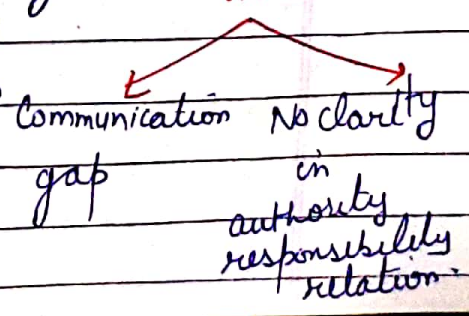 Communication No clarity
gap in
authority
responsibility
relation.